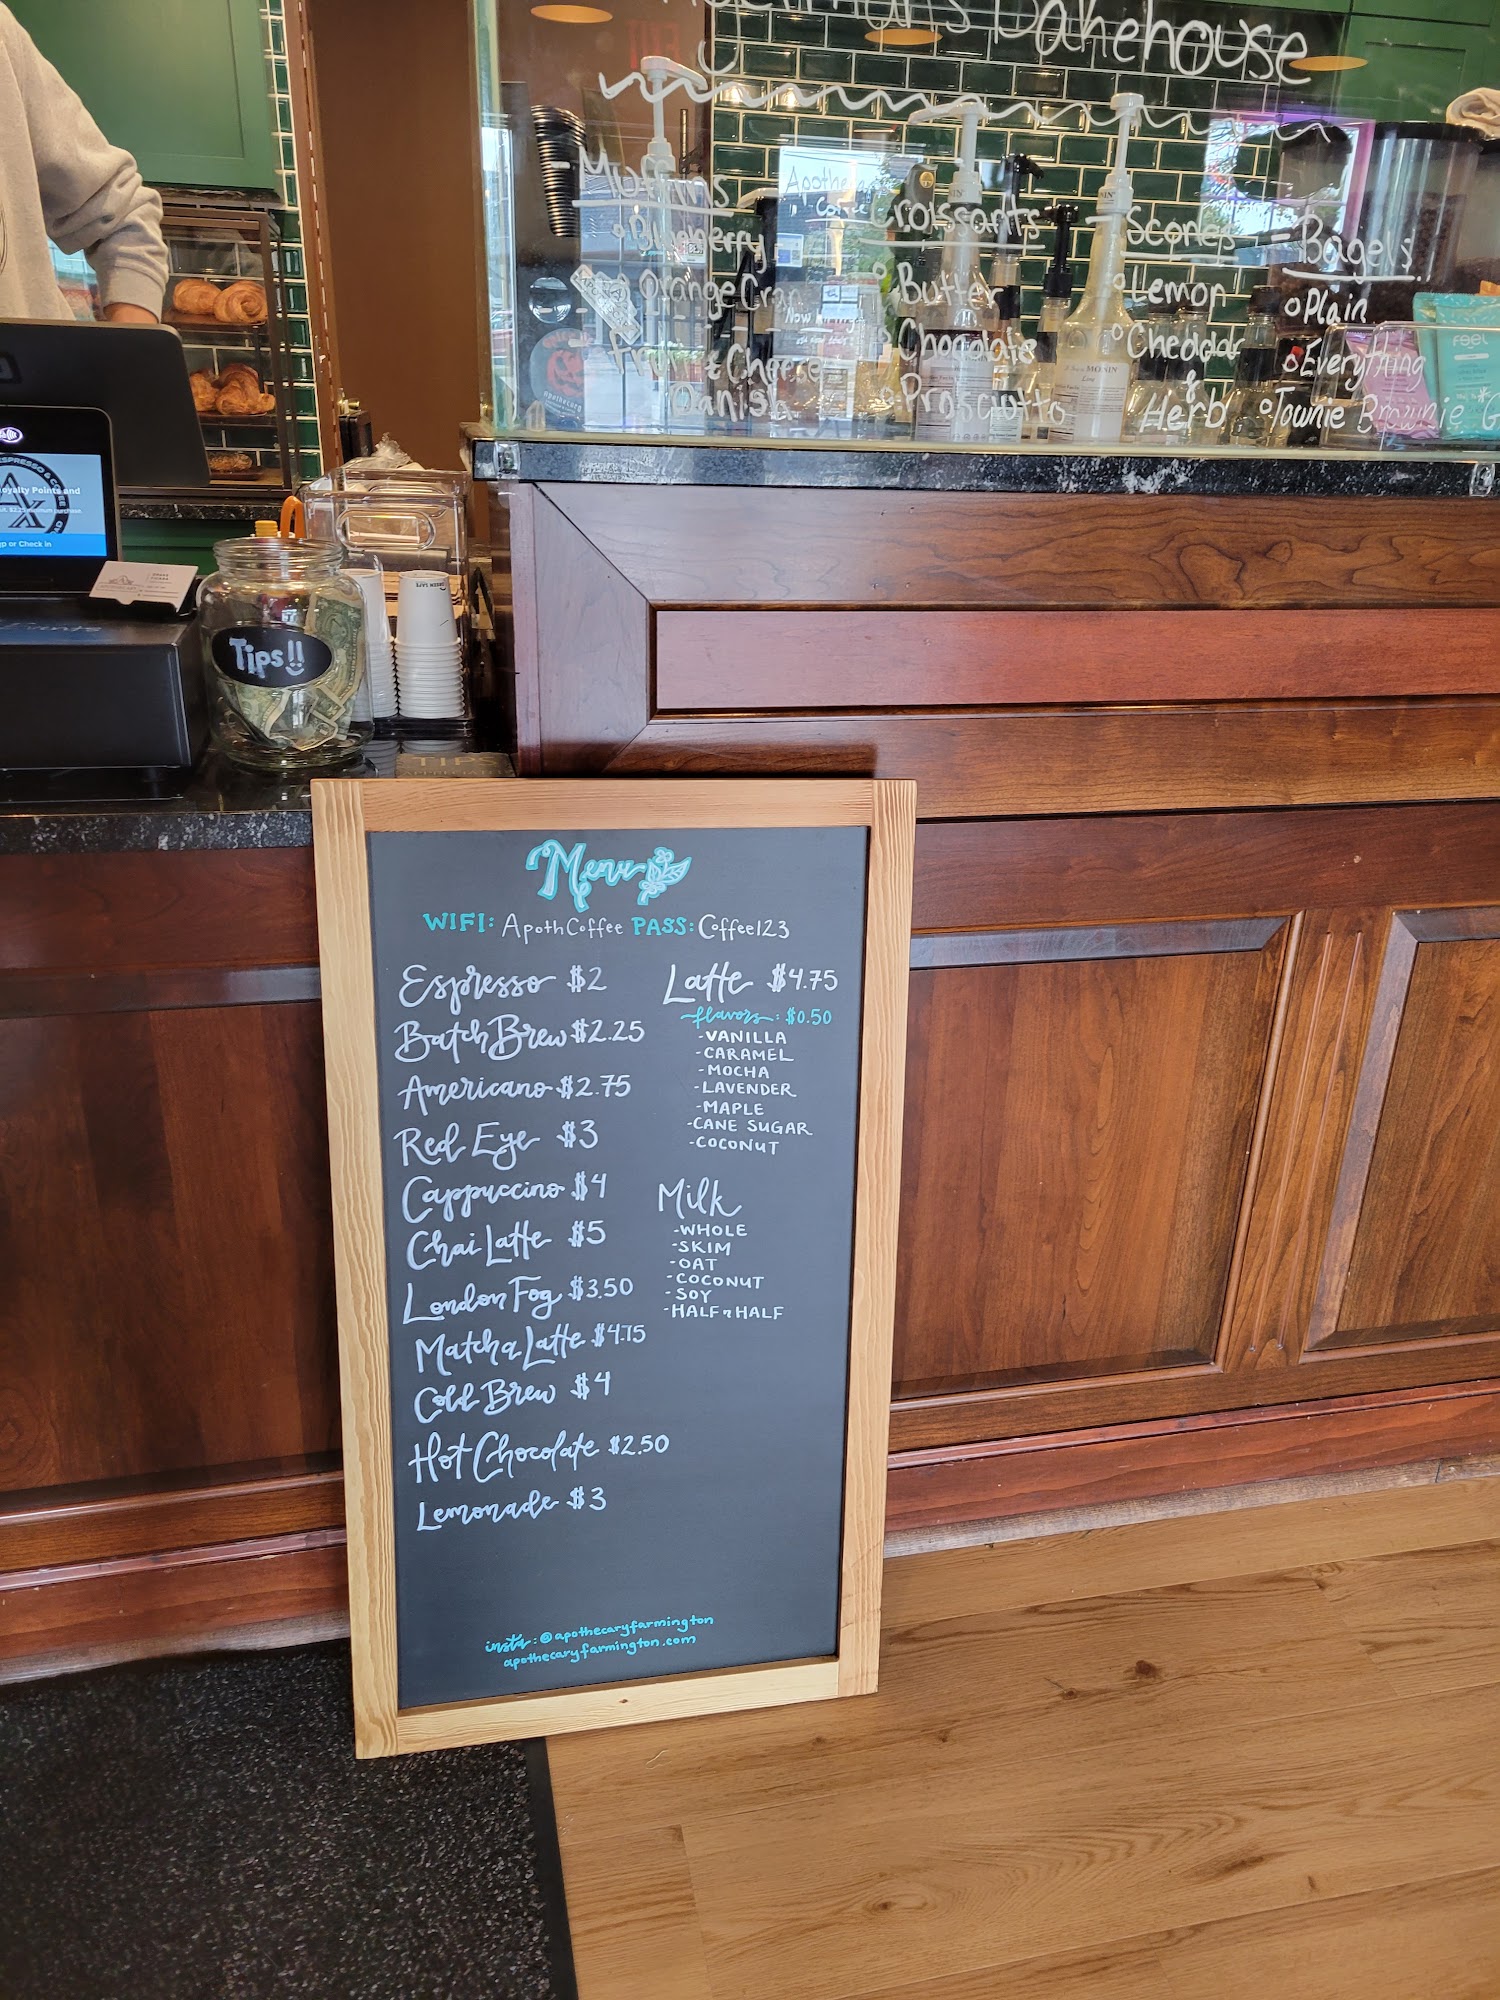 Bakehouse
Muffins
Blueberry
Orange Cran
Fruit & Cheese
Danish
Croissants
Butter
Chocolate
Prosciutto
Scones
Lemon
Cheddar
&
Herb
Bagels
Plain
Everything
Townie Brownie
feel
Apothecary
Coffee
MONIN
oyalty Points and
or Check in
Tips!!
TIPS
Menu
WIFI: ApothCoffee PASS: Coffee123
Espresso $2
Batch Brew $2.25
Americano $2.75
Red Eye $3
Cappuccino $4
Chai Latte $5
London Fog $3.50
Matcha Latte $4.75
Cold Brew $4
Hot Chocolate $2.50
Lemonade $3
Latte $4.75
flavors: $0.50
-VANILLA
-CARAMEL
-MOCHA
-LAVENDER
-MAPLE
-CANE SUGAR
-COCONUT
Milk
-WHOLE
-SKIM
-OAT
-COCONUT
-SOY
-HALF n HALF
insta: @apothecaryfarmington
apothecaryfarmington.com